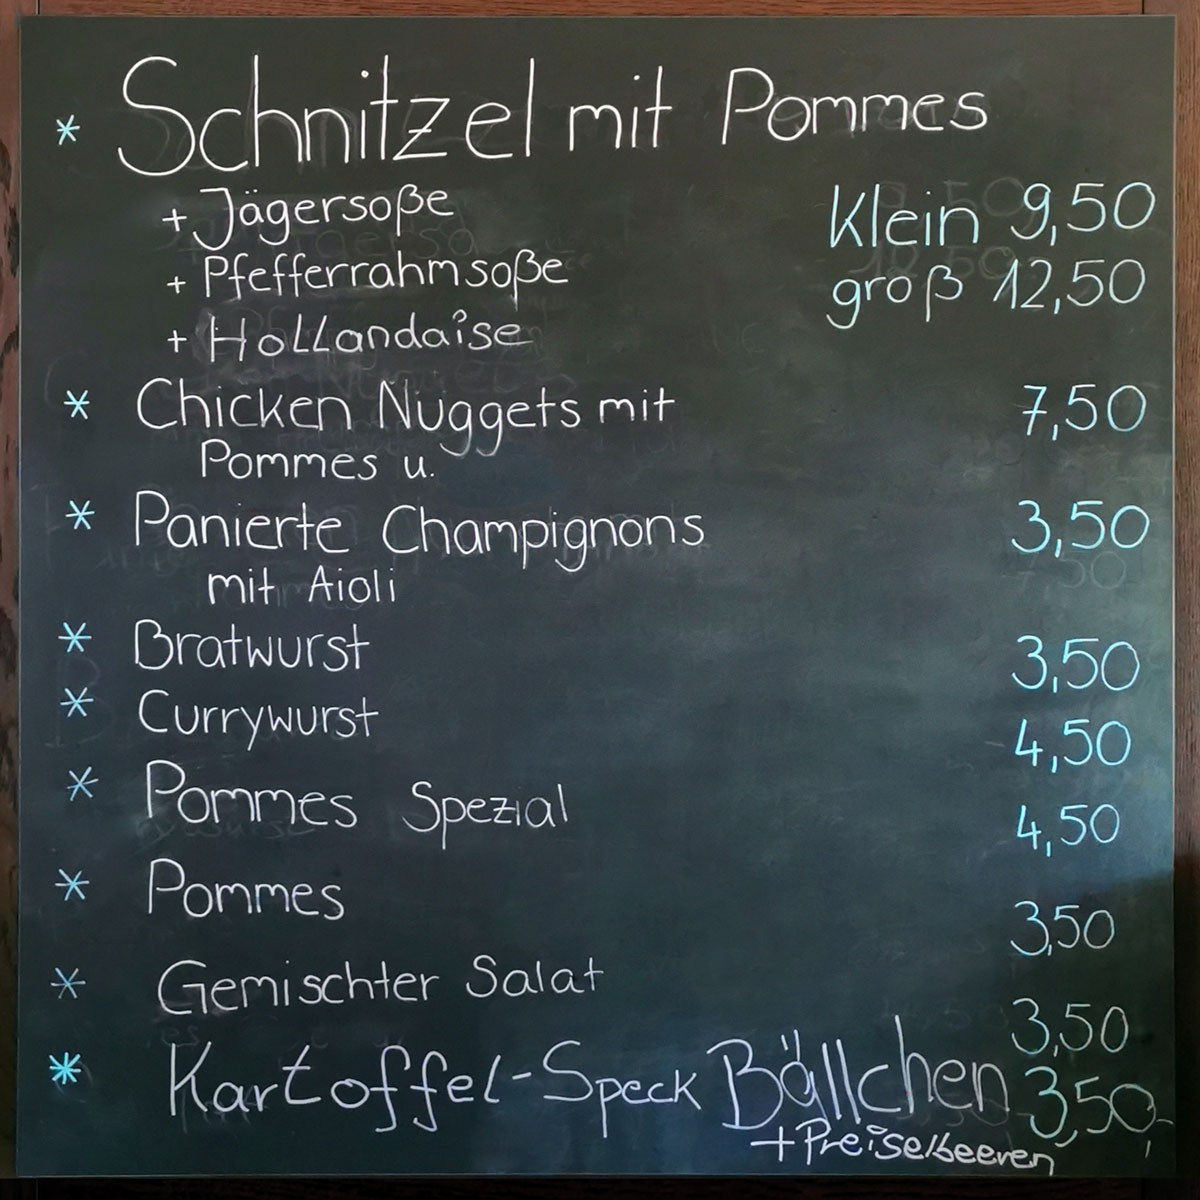 * Schnitzel mit Pommes
+ Jägersoße Klein 9,50
+ Pfefferrahmsoße groß 12,50
+ Hollandaise
* Chicken Nuggets mit 7,50
Pommes u.
* Panierte Champignons 3,50
mit Aioli
* Bratwurst 3,50
* Currywurst 4,50
* Pommes Spezial 4,50
* Pommes 3,50
* Gemischter Salat 3,50
* Kartoffel-Speck Bällchen 3,50
+Preiselbeeren